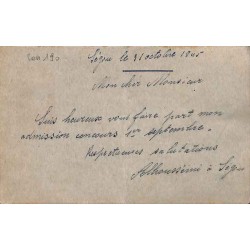 Ségou le 21 octobre 1945
Mon cher Monsieur
Suis heureux vous faire part mon
admission concours 1er septembre.
Respectueuses salutations
Alhousseini à Ségou